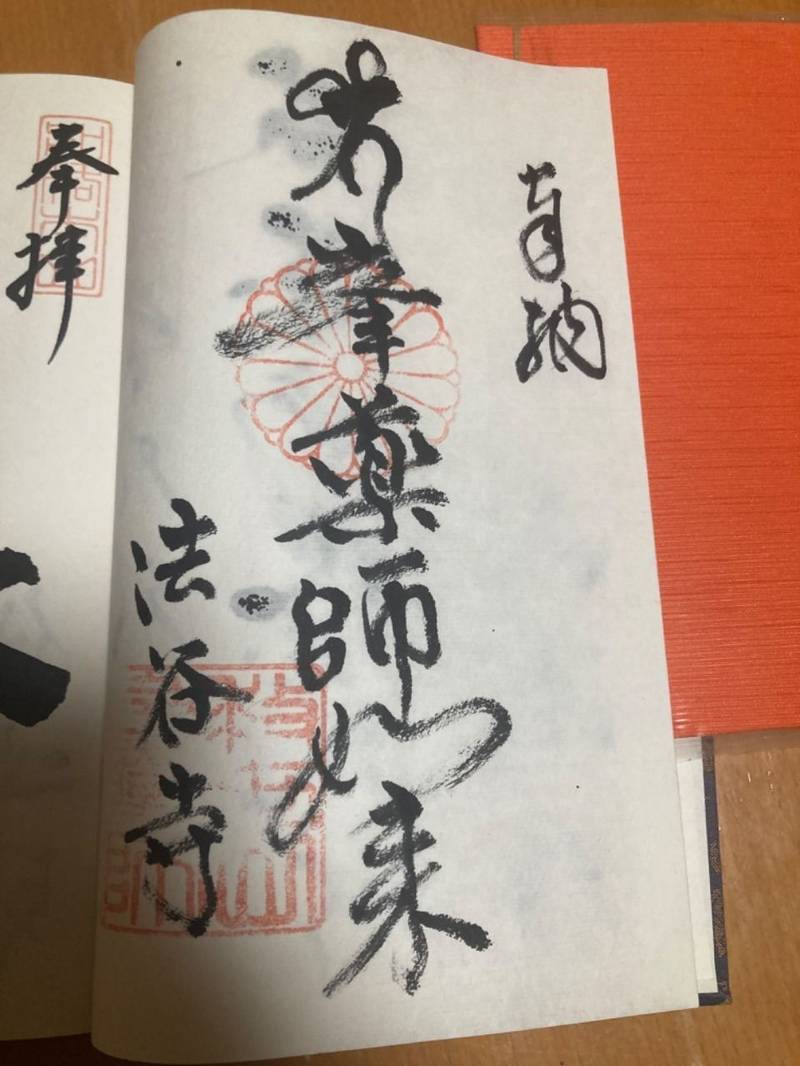 奉納
峯薬師如来
法谷寺
奉拝